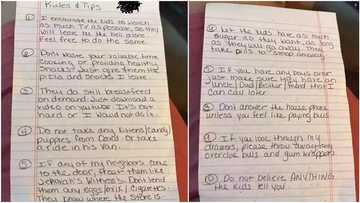 Rules & Tips
① I encourage the kids to watch
as much TV as possible, so they
will leave me the hell alone
Feel free to do the same.
② Don't waste your valuable time
cooking, or providing healthy
snacks! Just give them the
pizza and snacks I leave.
③ They do still breastfeed
on demand. Just download a
video on youtube. It's not
hard or I would not do it.
④ Do not take any kittens/candy/
puppies from Candi or take
a ride in his van.
⑤ If any of my neighbors come
to the door, treat them like
Jehovah's Witness. Don't lend
them any eggs/milk/cigarettes.
They know where the store is
⑥ Let the kids have as much
sugar as they want, as long
as they will go away. They
take pills to sleep anyway
⑦ If you have any boys over
just make sure they have an
Uncle/Dad/Brother/friend that I
can call over
⑧ Dont answer the house phone
unless you feel like paying bills
⑨ If you look through my
drawers, please throw away any
overdue bills and gum wrappers
⑩ Do not believe ANYTHING
the kids tell you